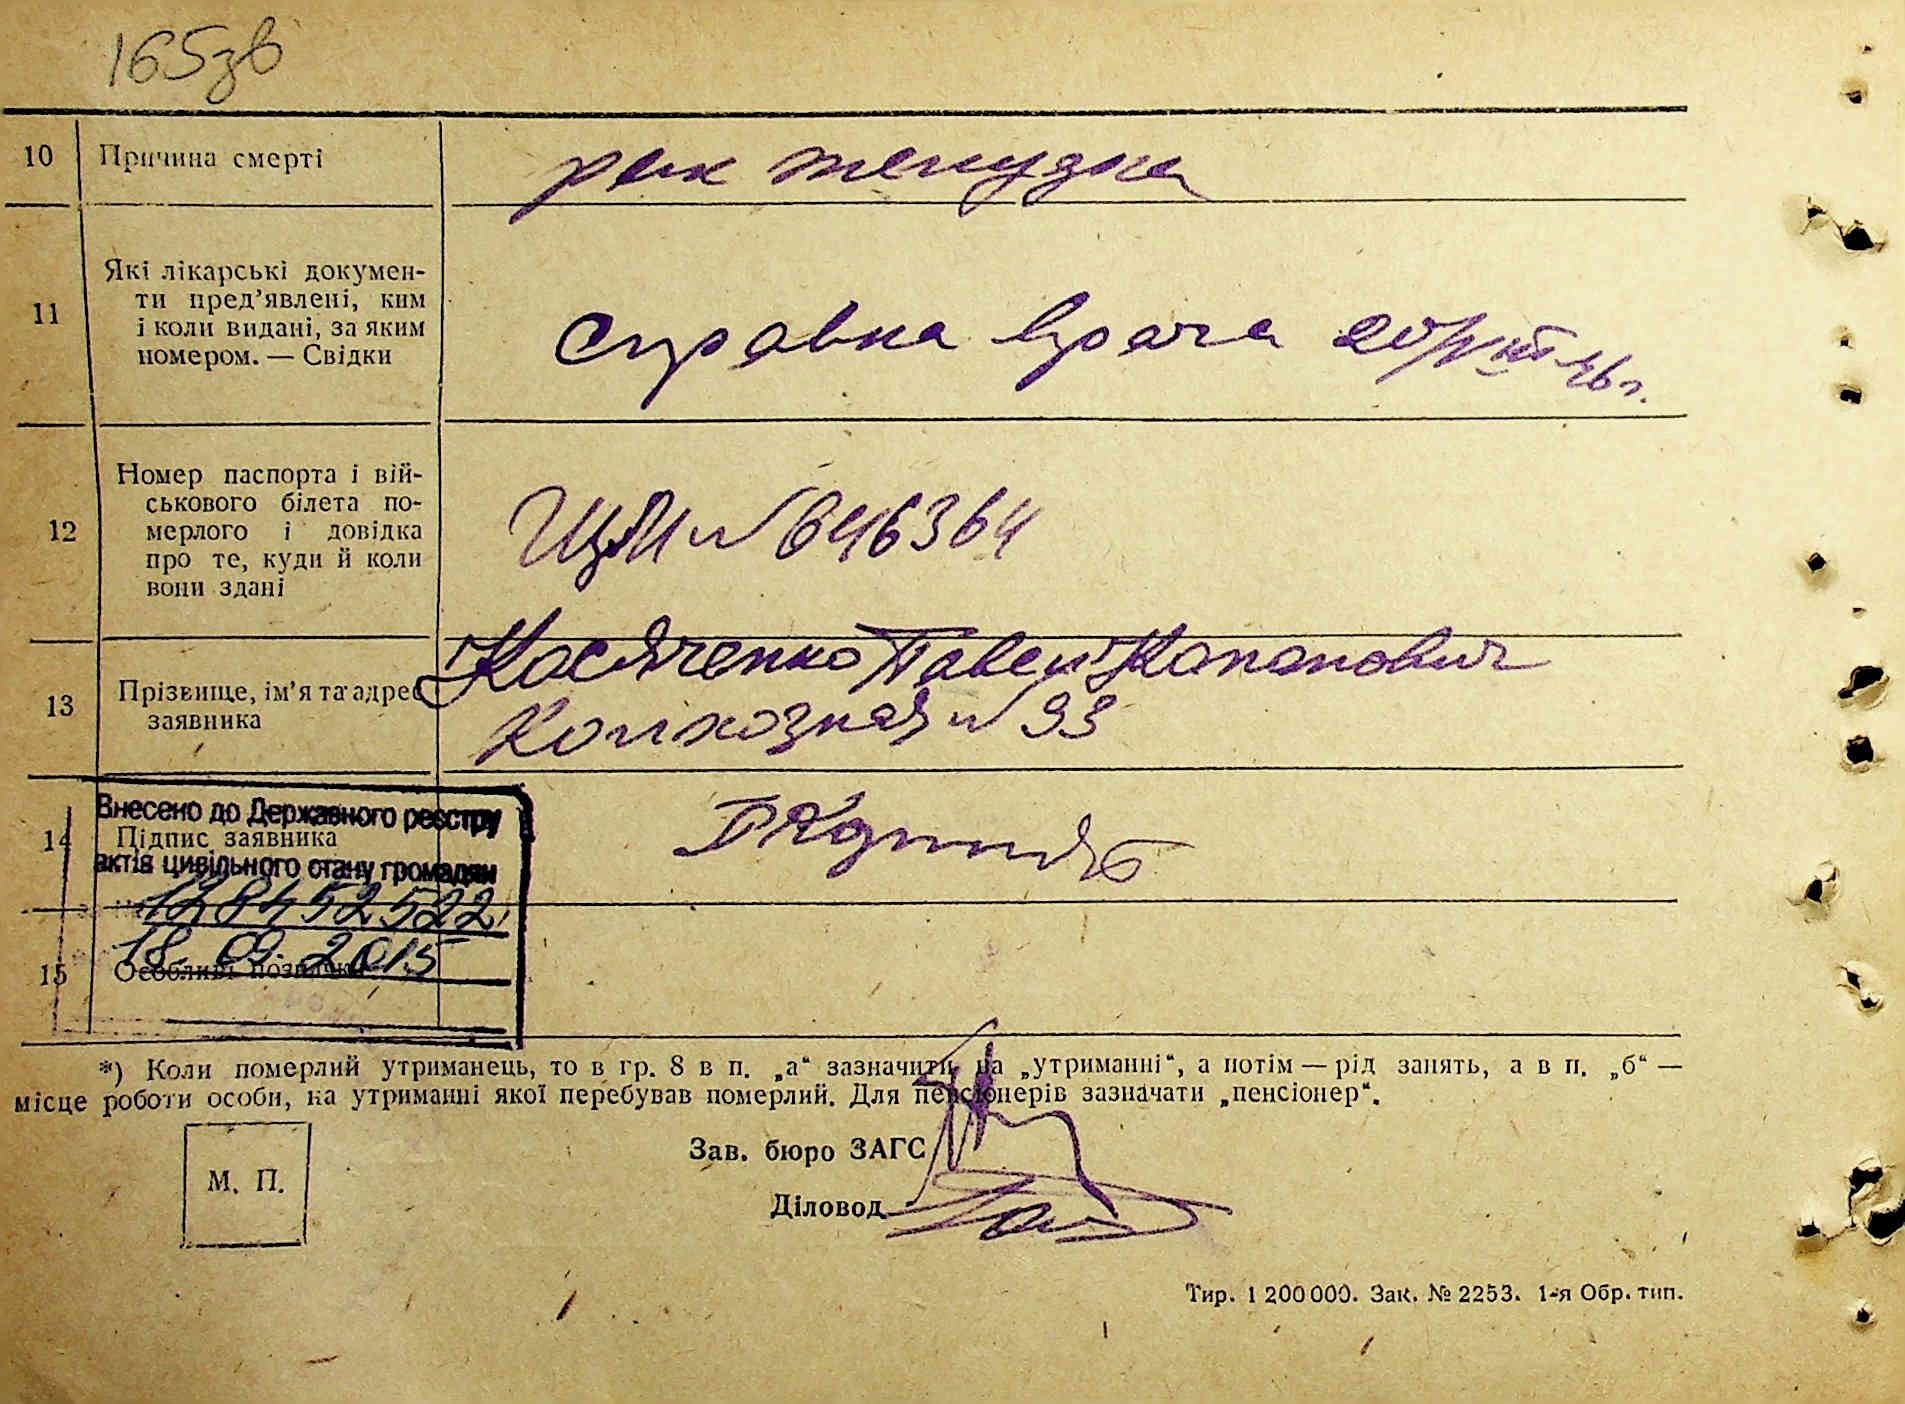 165зв
10 Причина смерті рак желудка
11 Які лікарські докумен-
ти пред’явлені, ким
і коли видані, за яким
номером. — Свідки
Справка врача
12 Номер паспорта і вій-
ськового білета по-
мерлого і довідка
про те, куди й коли
вони здані
№ 646364
13 Прізвище, ім’я та адрес
заявника
Косяченко Павел
Колхозная № 33
Внесено до Державного реєстру
14 Підпис заявника
актів цивільного стану громадян
128452522
18.09.2015
15 Особливі позначки
*) Коли померлий утриманець, то в гр. 8 в п. „а“ зазначити на „утриманні“, а потім — рід занять, а в п. „б“ —
місце роботи особи, на утриманні якої перебував померлий. Для пенсіонерів зазначати „пенсіонер“.
Зав. бюро ЗАГС
М. П.
Діловод
Тир. 1 200 000. Зак. № 2253. 1-я Обр. тип.